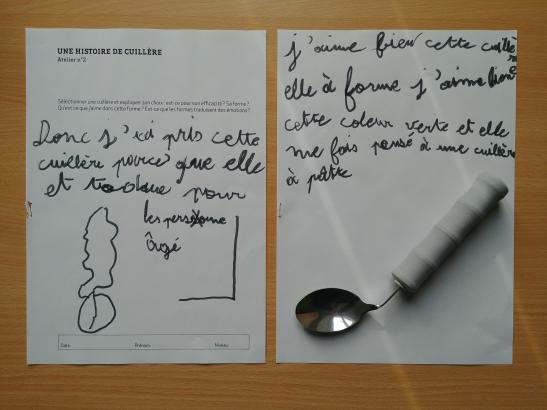 UNE HISTOIRE DE CUILLÈRE
Atelier n°2
Sélectionner une cuillère et expliquer son choix: est-ce pour son efficacité? Sa forme?
Qu'est ce que j'aime dans cette forme? Est-ce que les formes traduisent des émotions?
Donc j'ai pris cette
cuillère parce que elle
et pour
les personne
Âgé
Date
Prénom
Niveau
j'aime bien cette cuillè
elle à forme j'aime bien
cette coleur verte et elle
me fois pensé à une cuillère
à pâte